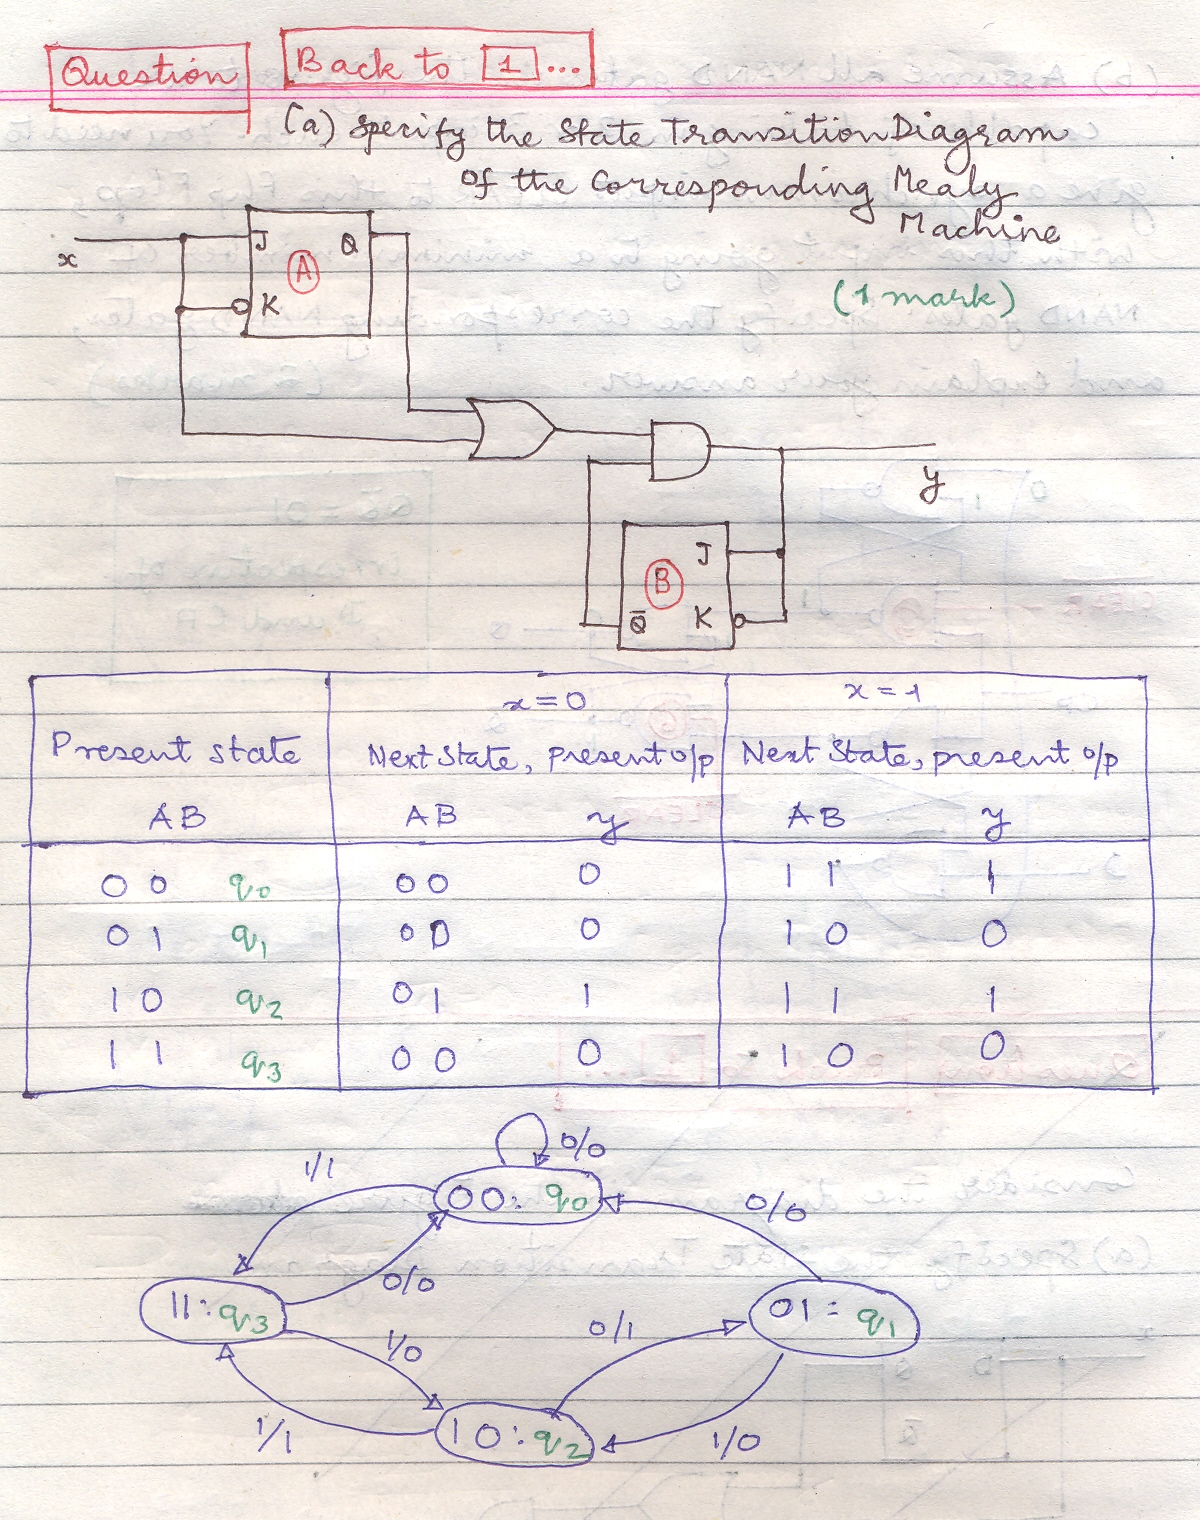 Question
Back to 1 ...
(a) Specify the State Transition Diagram
of the Corresponding Mealy
Machine
(1 mark)
x
J Q
A
K
y
J
B
Q̄ K
x = 0 x = 1
Present state Next State, present o/p Next State, present o/p
AB AB y AB y
0 0 q0 0 0 0 1 1 1
0 1 q1 0 0 0 1 0 0
1 0 q2 0 1 1 1 1 1
1 1 q3 0 0 0 1 0 0
0/0
1/1
00: q0
0/0
0/0
11: q3
01: q1
0/1
1/0
1/1
10: q2
1/0